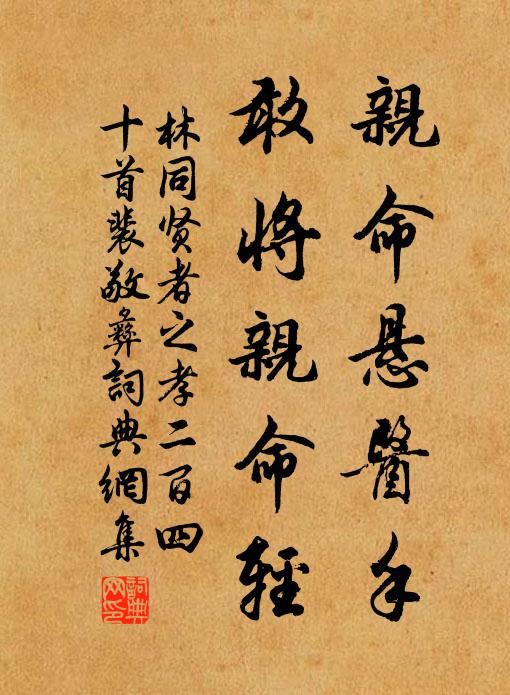 親命悬醫手
敢将親命輕
林同贤者之孝二百四
十首裴敬彝詞典網集
詞典網印